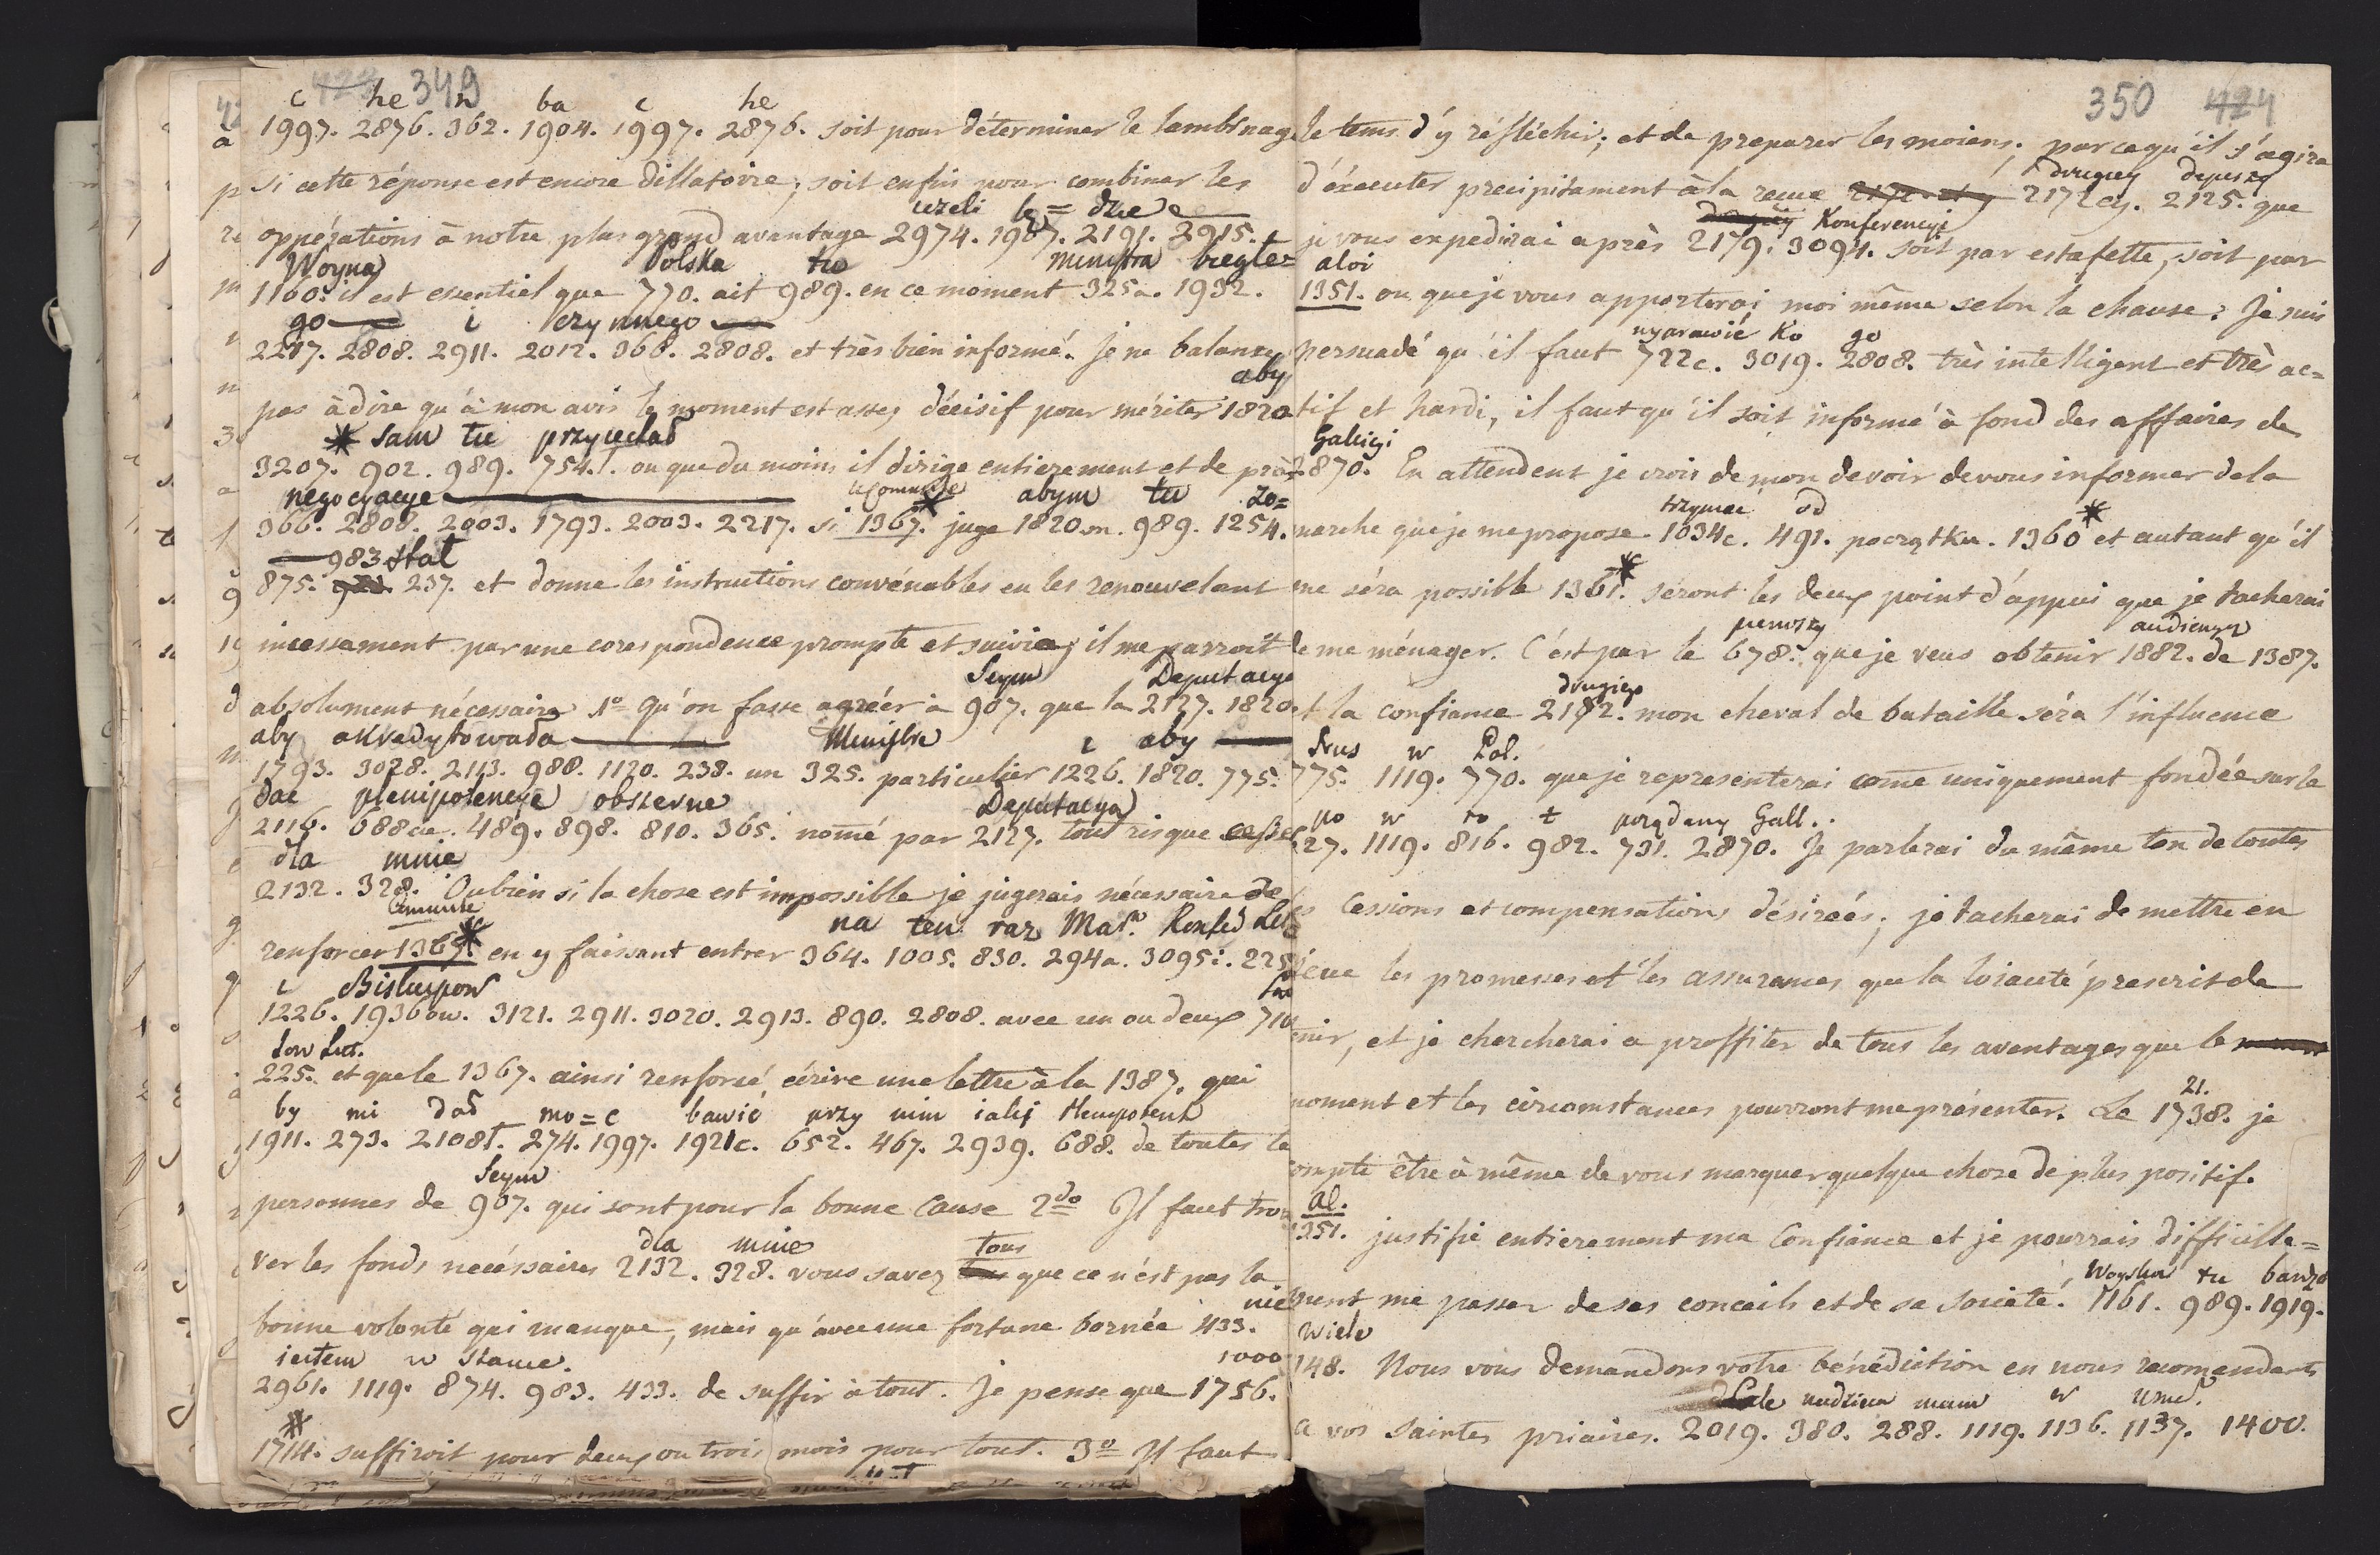 423 349
c he n ba c he
à 1997. 2876. 362. 1904. 1997. 2876. soit pour déterminer le lambinage
si cette réponse est encore dillatoire; soit enfin pour combiner les
iezeli bę = dzie
oppérations à notre plus grand avantage 2974. 1907. 2191. 2915.
Woyna Polska tu ministra biegłe=
1160. il est essentiel que 770. ait 989. en ce moment 325a. 1932.
go i czynnego
2217. 2808. 2911. 2012. 368. 2808. et très bien informé. Je ne balance
aby
pas à dire qu'à mon avis le moment est assez décisif pour mériter 1820
* sam tu przyiechał
3207. 902. 989. 754.ł. ou que du moins il dirige entierement et de près
negocyacye abym tu zo=
366. 2808. 2003. 1793. 2003. 2217. si 1367.* juge 1820.m. 989. 1254.
983 stał
875. 237. et donne les instructions convénables en les renouvelant
incessament par une corespondence prompte et suivie; il me parroit
Seym Deputacye
absolument nécessaire 1o qu'on fasse agréér à 907. que la 2127. 1820.
aby akredytowała Ministra i aby
1793. 3028. 2113. 988. 1120. 238. un 325. particulier 1226. 1820. 775.
dać plenipotencye obszerne Deputacya
2116. 688cie. 489. 898. 810. 365. nomé par 2127. tout risque cesse
dla mnie
2132. 328. Ou bien si la chose est impossible je jugerais nécessaire de
na ten raz Mar. Konfed Lit
renforcer 1367.* en y faissant entrer 364. 1005. 830. 294a. 3095i. 225
i Biskupow
1226. 1936ow. 3121. 2911. 3020. 2913. 890. 2808. avec un ou deux 710
łow Lit.
225. et que le 1367. ainsi renforcé écrive une lettre à la 1387. qui
by mi dał mo=c bawić przy nim iakiś Plenipotent
1911. 273. 2108ł. 274. 1997. 1921c. 652. 467. 2939. 688. de toutes le
Seym
personnes de 907. qui sont pour la bonne cause 2do Il faut trou
dla mnie tous
ver les fonds necéssaires 2132. 328. vous savez que ce n'est pas la
nie
bonne volonté qui manque, mais qu'avec une fortune bornée 433.
iestem w stanie. 1000
2961. 1119. 874. 983. 433. de suffir à tout. Je pense que 1756.
*
1714. suffiroit pour deux ou trois mois pour tout. 3o Il faut
350 424
le tems d'y réfléchir; et de preparer les moiens. parcequ'il s'agira
drugiey depeszy
d'éxecuter precipitament à la recue 2172ey. 2125. que
Konferencyi
je vous expedirai après 2179. 3094. soit par estafette, soit par
aloi
1351. ou que je vous apporterai moi même selon la chause. Je suis
wyprawić ko go
persuadé qu'il faut 722c. 3019. 2808. très intelligent et très ac=
tif et hardi, il faut qu'il soit informé à fond des affaires de
Galicyi
2870. En attendent je crois de mon devoir de vous informer de la
trzymać od *
marche que je me propose 1034c. 491. początku. 1360 et autant qu'il
me séra possible 1361.* séront les deux point d'appui que je tacherai
pierwszy audiencyą
de me ménager. C'est par le 678. que je veus obtenir 1882. de 1387.
drugiego
et la confiance 2172. mon cheval de bataille séra l'influence
Prus w Pol.
775. 1119. 770. que je representerai come uniquement fondée sur le
po w ro t porządany Gall..
627. 1119. 816. 982. 731. 2870. Je parlerai du même ton de toutes
les cessions et compensations désirées; je tacherai de mettre en
les promesses et les assurances que la loiauté prescrit de
tenir, et je chercherai a proffiter de tous les aventages que le
21.
moment et les circomstances pourront me présenter. Le 1738. je
compte être à même de vous marquer quelque chose de plus positif.
Al.
1351. justifie entierement ma confiance et je pourrais difficille=
Woyska tu bardzo
ment me passer de ses conceils et de sa societé. 1161. 989. 1919.
wiele
1148. Nous vous demandons votre bénédiction en nous recomendants
Całe nadzieia mam w
a vos saintes priaires. 2019. 380. 288. 1119. 1136. 1137. 1400.